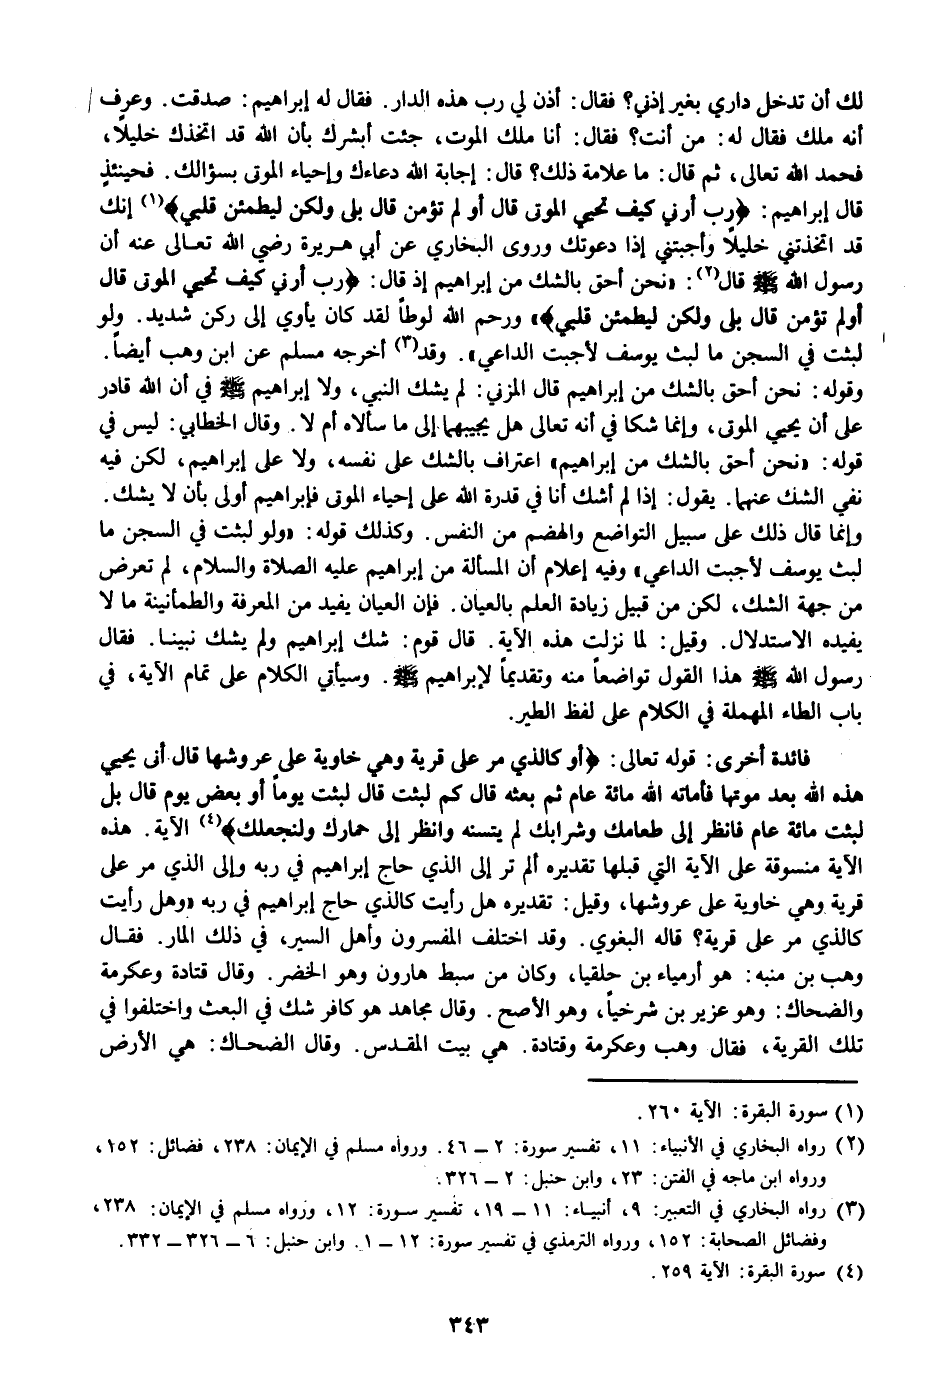 لك أن تدخل داري بغير إذني؟ فقال: أذن لي رب هذه الدار. فقال له إبراهيم: صدقت. وعرف
أنه ملك فقال له: من أنت؟ فقال: أنا ملك الموت، جئت أبشرك بأن الله قد اتخذك خليلًا،
فحمد الله تعالى، ثم قال: ما علامة ذلك؟ قال: إجابة الله دعاءك وإحياء الموتى بسؤالك. فحينئذٍ
قال إبراهيم: ﴿رب أرني كيف تحيي الموتى قال أو لم تؤمن قال بلى ولكن ليطمئن قلبي﴾(١) إنك
قد اتخذتني خليلًا وأجبتني إذا دعوتك وروى البخاري عن أبي هريرة رضي الله تعالى عنه أن
رسول الله ﷺ قال(٢): «نحن أحق بالشك من إبراهيم إذ قال: ﴿رب أرني كيف تحيي الموتى قال
أولم تؤمن قال بلى ولكن ليطمئن قلبي﴾» ورحم الله لوطاً لقد كان يأوي إلى ركن شديد. ولو
لبثت في السجن ما لبث يوسف لأجبت الداعي». وقد(٣) أخرجه مسلم عن ابن وهب أيضاً.
وقوله: نحن أحق بالشك من إبراهيم قال المزني: لم يشك النبي، ولا إبراهيم ﷺ في أن الله قادر
على أن يحيي الموتى، وإنما شكا في أنه تعالى هل يجيبهما إلى ما سألاه أم لا. وقال الخطابي: ليس في
قوله: «نحن أحق بالشك من إبراهيم» اعتراف بالشك على نفسه، ولا على إبراهيم، لكن فيه
نفي الشك عنهما. يقول: إذا لم أشك أنا في قدرة الله على إحياء الموتى فإبراهيم أولى بأن لا يشك.
وإنما قال ذلك على سبيل التواضع والهضم من النفس. وكذلك قوله: «ولو لبثت في السجن ما
لبث يوسف لأجبت الداعي» وفيه إعلام أن المسألة من إبراهيم عليه الصلاة والسلام، لم تعرض
من جهة الشك، لكن من قبيل زيادة العلم بالعيان. فإن العيان يفيد من المعرفة والطمأنينة ما لا
يفيده الاستدلال. وقيل: لما نزلت هذه الآية. قال قوم: شك إبراهيم ولم يشك نبينا. فقال
رسول الله ﷺ هذا القول تواضعاً منه وتقديماً لإبراهيم ﷺ. وسيأتي الكلام على تمام الآية، في
باب الطاء المهملة في الكلام على لفظ الطير.
فائدة أخرى: قوله تعالى: ﴿أو كالذي مر على قرية وهي خاوية على عروشها قال أنى يحيي
هذه الله بعد موتها فأماته الله مائة عام ثم بعثه قال كم لبثت قال لبثت يوماً أو بعض يوم قال بل
لبثت مائة عام فانظر إلى طعامك وشرابك لم يتسنه وانظر إلى حمارك ولنجعلك﴾(٤) الآية. هذه
الآية منسوقة على الآية التي قبلها تقديره ألم تر إلى الذي حاج إبراهيم في ربه وإلى الذي مر على
قرية وهي خاوية على عروشها، وقيل: تقديره هل رأيت كالذي حاج إبراهيم في ربه «وهل رأيت
كالذي مر على قرية؟ قاله البغوي. وقد اختلف المفسرون وأهل السير، في ذلك المار. فقال
وهب بن منبه: هو أرمياء بن حلقيا، وكان من سبط هارون وهو الخضر. وقال قتادة وعكرمة
والضحاك: وهو عزير بن شرخياً، وهو الأصح. وقال مجاهد هو كافر شك في البعث واختلفوا في
تلك القرية، فقال وهب وعكرمة وقتادة. هي بيت المقدس. وقال الضحاك: هي الأرض
(١) سورة البقرة: الآية ٢٦٠.
(٢) رواه البخاري في الأنبياء: ١١، تفسير سورة: ٢ – ٤٦. ورواه مسلم في الإيمان: ٢٣٨، فضائل: ١٥٢،
ورواه ابن ماجه في الفتن: ٢٣، وابن حنبل: ٢ – ٣٢٦.
(٣) رواه البخاري في التعبير: ٩، أنبياء: ١١ – ١٩، تفسير سورة: ١٢، ورواه مسلم في الإيمان: ٢٣٨،
وفضائل الصحابة: ١٥٢، ورواه الترمذي في تفسير سورة: ١٢ – ١. وابن حنبل: ٦ – ٣٢٦ – ٣٣٢.
(٤) سورة البقرة: الآية ٢٥٩.
٣٤٣